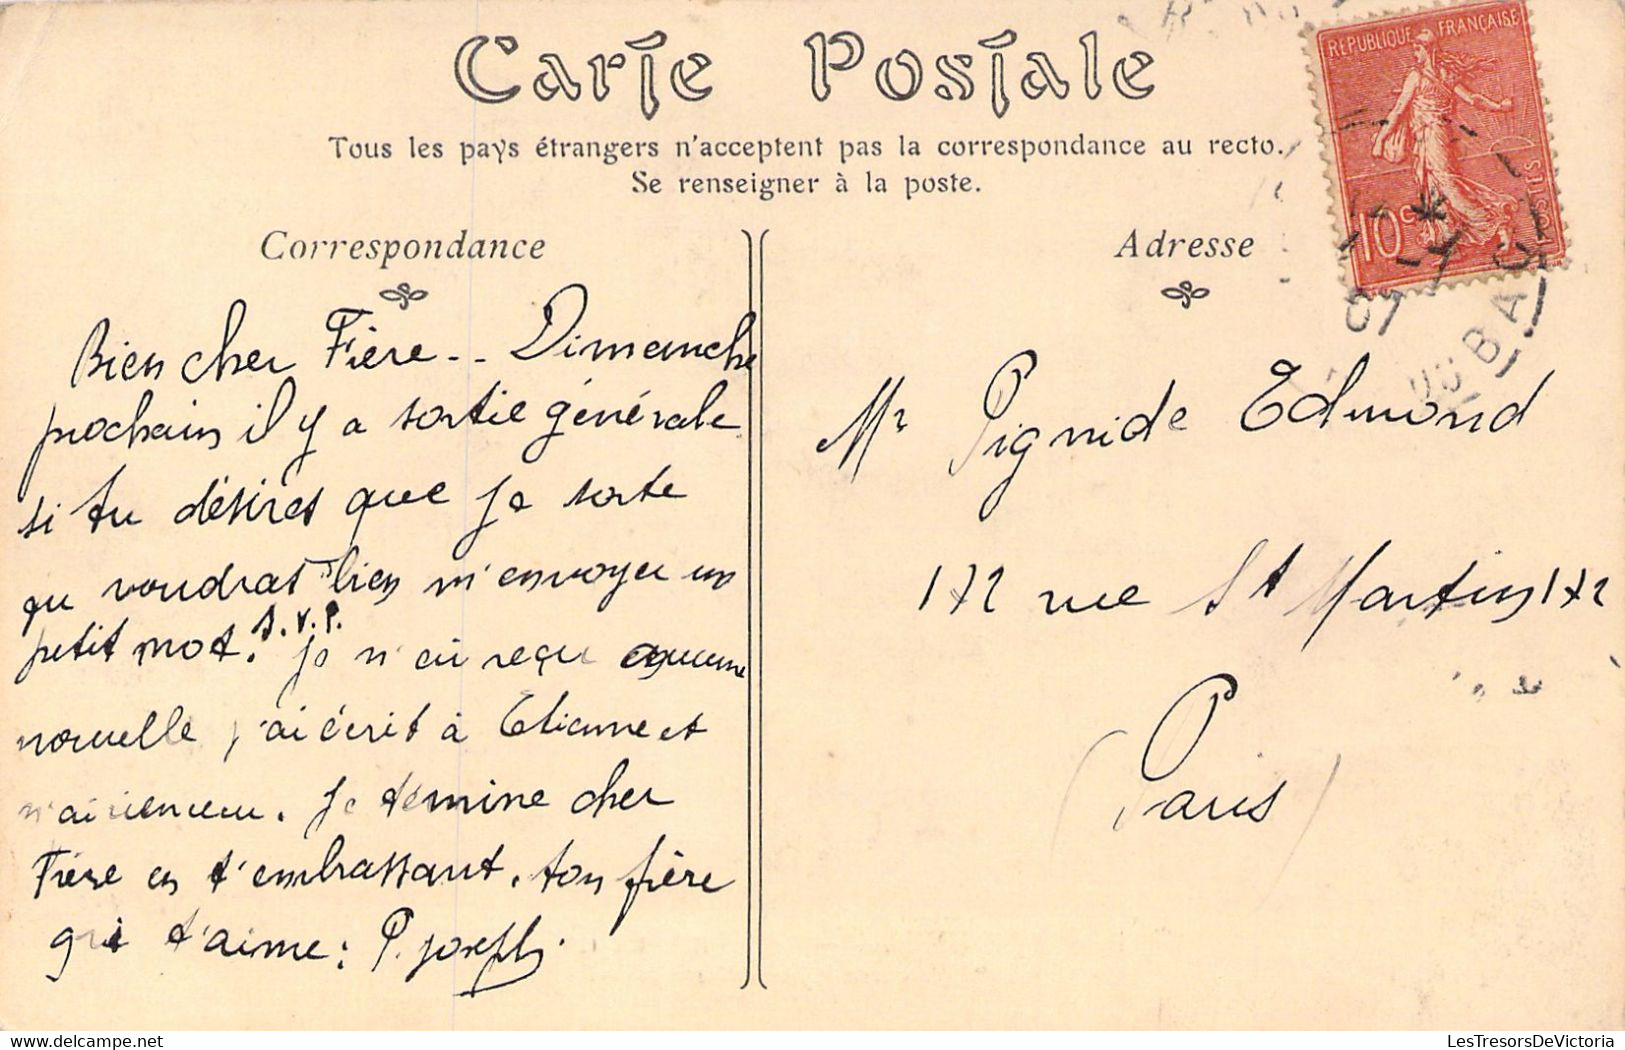 Carte Postale
Tous les pays étrangers n'acceptent pas la correspondance au recto.
Se renseigner à la poste.
Correspondance
Bien cher Frère.. Dimanche
prochain il y a sortie générale
si tu désires que je sorte
tu voudras bien m'envoyer un
petit mot. s.v.p. Je n'ai reçu aucune
nouvelle j'ai écrit à Etienne et
n'ai rien eu. Je termine cher
Frère en t'embrassant. ton frère
qui t'aime: P. Joseph.
Adresse
Mr Pignide Edmond
172 rue St Martin 172
(Paris)
REPUBLIQUE FRANÇAISE
10c
POSTES
LesTresorsDeVictoria